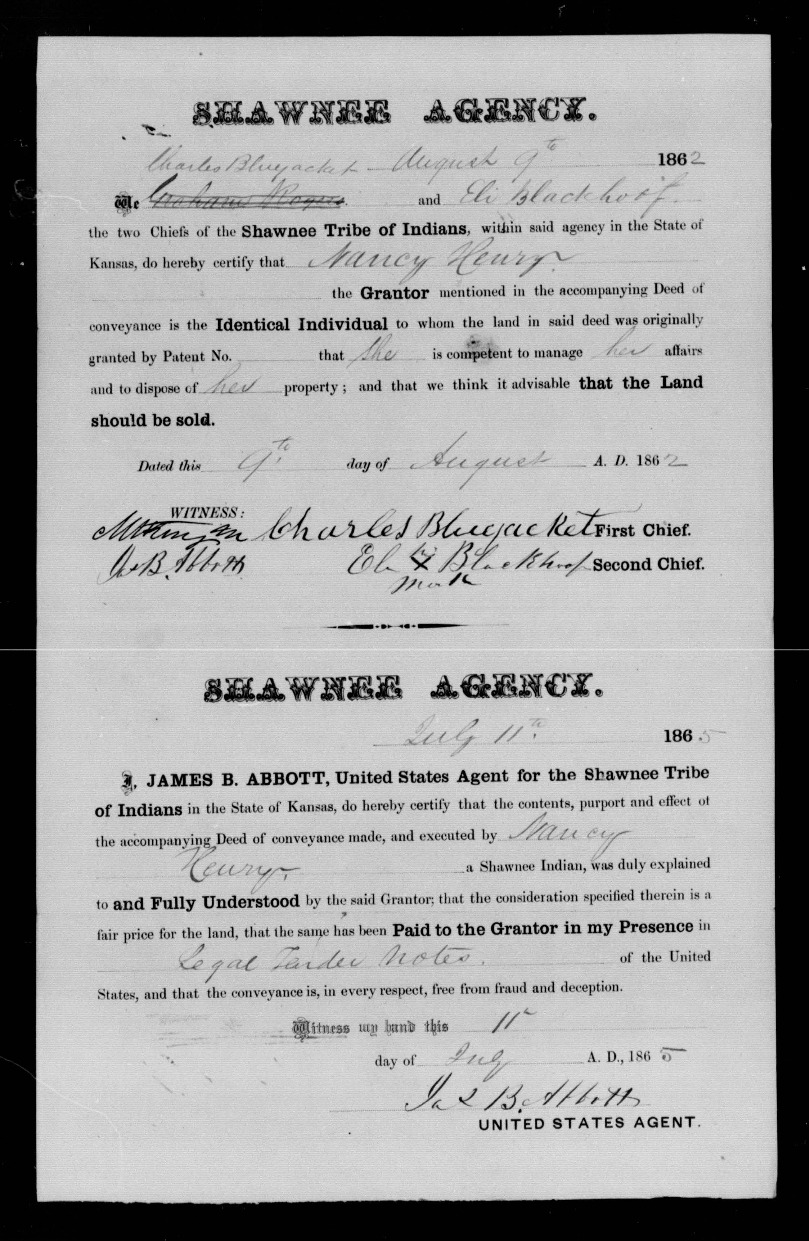 SHAWNEE AGENCY.
Charles Bluejacket August 9th 1862
We Graham Rogers. and Eli Blackhoof.
the two Chiefs of the Shawnee Tribe of Indians, within said agency in the State of
Kansas, do hereby certify that Nancy Henry.
the Grantor mentioned in the accompanying Deed of
conveyance is the Identical Individual to whom the land in said deed was originally
granted by Patent No. that she is competent to manage her affairs
and to dispose of her property; and that we think it advisable that the Land
should be sold.
Dated this 9th day of August A. D. 1862
WITNESS:
Charles Bluejacket First Chief.
Jas B. Abbott Eli his X Blackhoof Second Chief.
mark
SHAWNEE AGENCY.
July 11th. 1865
I, JAMES B. ABBOTT, United States Agent for the Shawnee Tribe
of Indians in the State of Kansas, do hereby certify that the contents, purport and effect of
the accompanying Deed of conveyance made, and executed by Nancy
Henry. a Shawnee Indian, was duly explained
to and Fully Understood by the said Grantor; that the consideration specified therein is a
fair price for the land, that the same has been Paid to the Grantor in my Presence in
Legal Tender Notes. of the United
States, and that the conveyance is, in every respect, free from fraud and deception.
Witness my hand this 11
day of July A. D., 1865
Jas B. Abbott
UNITED STATES AGENT.